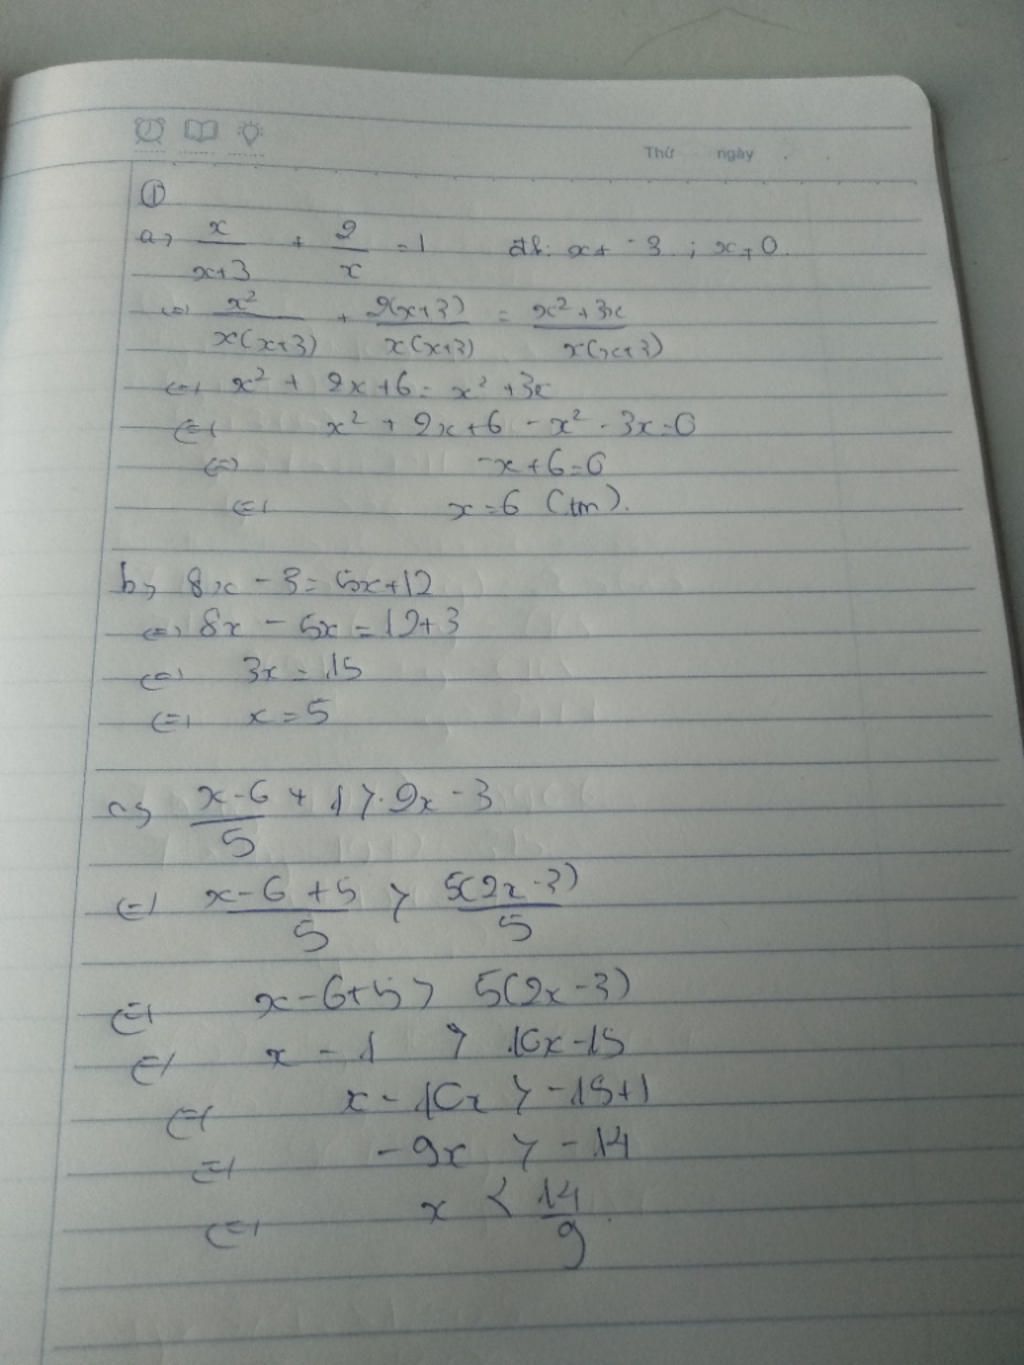 Thứ ngày
①
a, x/(x+3) + 2/x = 1 đk: x ≠ -3 ; x ≠ 0.
⇔ x²/(x(x+3)) + 2(x+3)/(x(x+3)) = (x²+3x)/(x(x+3))
⇔ x² + 2x+6 = x² +3x
⇔ x² + 2x+6 - x² - 3x=0
⇔ -x+6=0
⇔ x=6 (tm).
b, 8x - 3 = 5x+12
⇔ 8x - 5x = 12+3
⇔ 3x = 15
⇔ x = 5
c, (x-6)/5 + 1 > 2x - 3
⇔ (x-6+5)/5 > 5(2x-3)/5
⇔ x-6+5 > 5(2x-3)
⇔ x - 1 > 10x-15
⇔ x - 10x > -15+1
⇔ -9x > -14
⇔ x < 14/9.